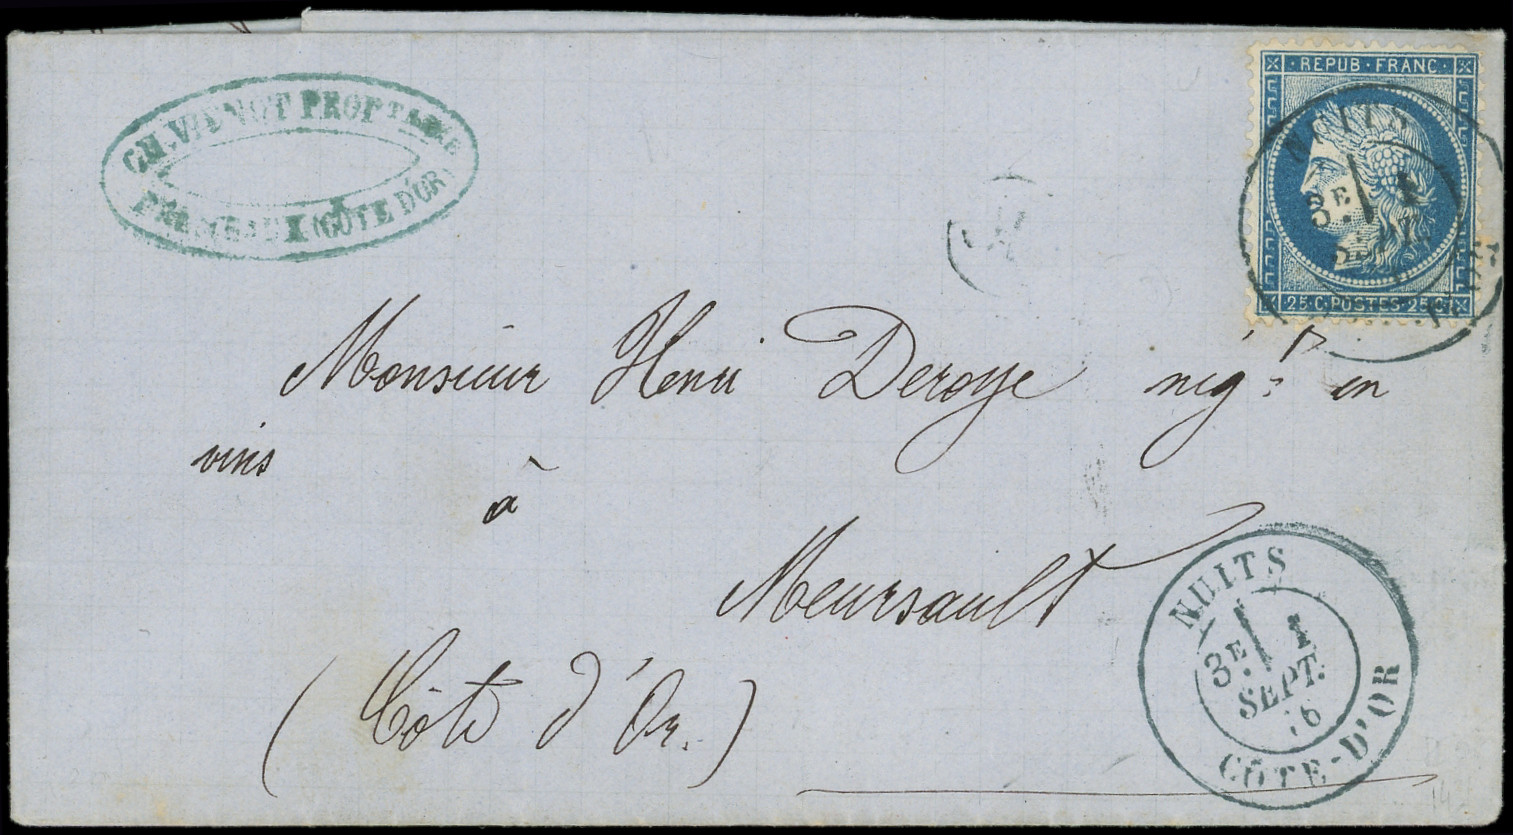 CH. VIENOT PROPTAIRE
PRÉMEAUX (CÔTE D'OR)
REPUB · FRANC ·
NUITS
3E 1
SEPT.
25 C · POSTES · 25 C
Monsieur Henri Deroye nég.t en
vins
à
Meursault
(Côte d'Or.)
NUITS
3E 1
SEPT.
76
CÔTE-D'OR